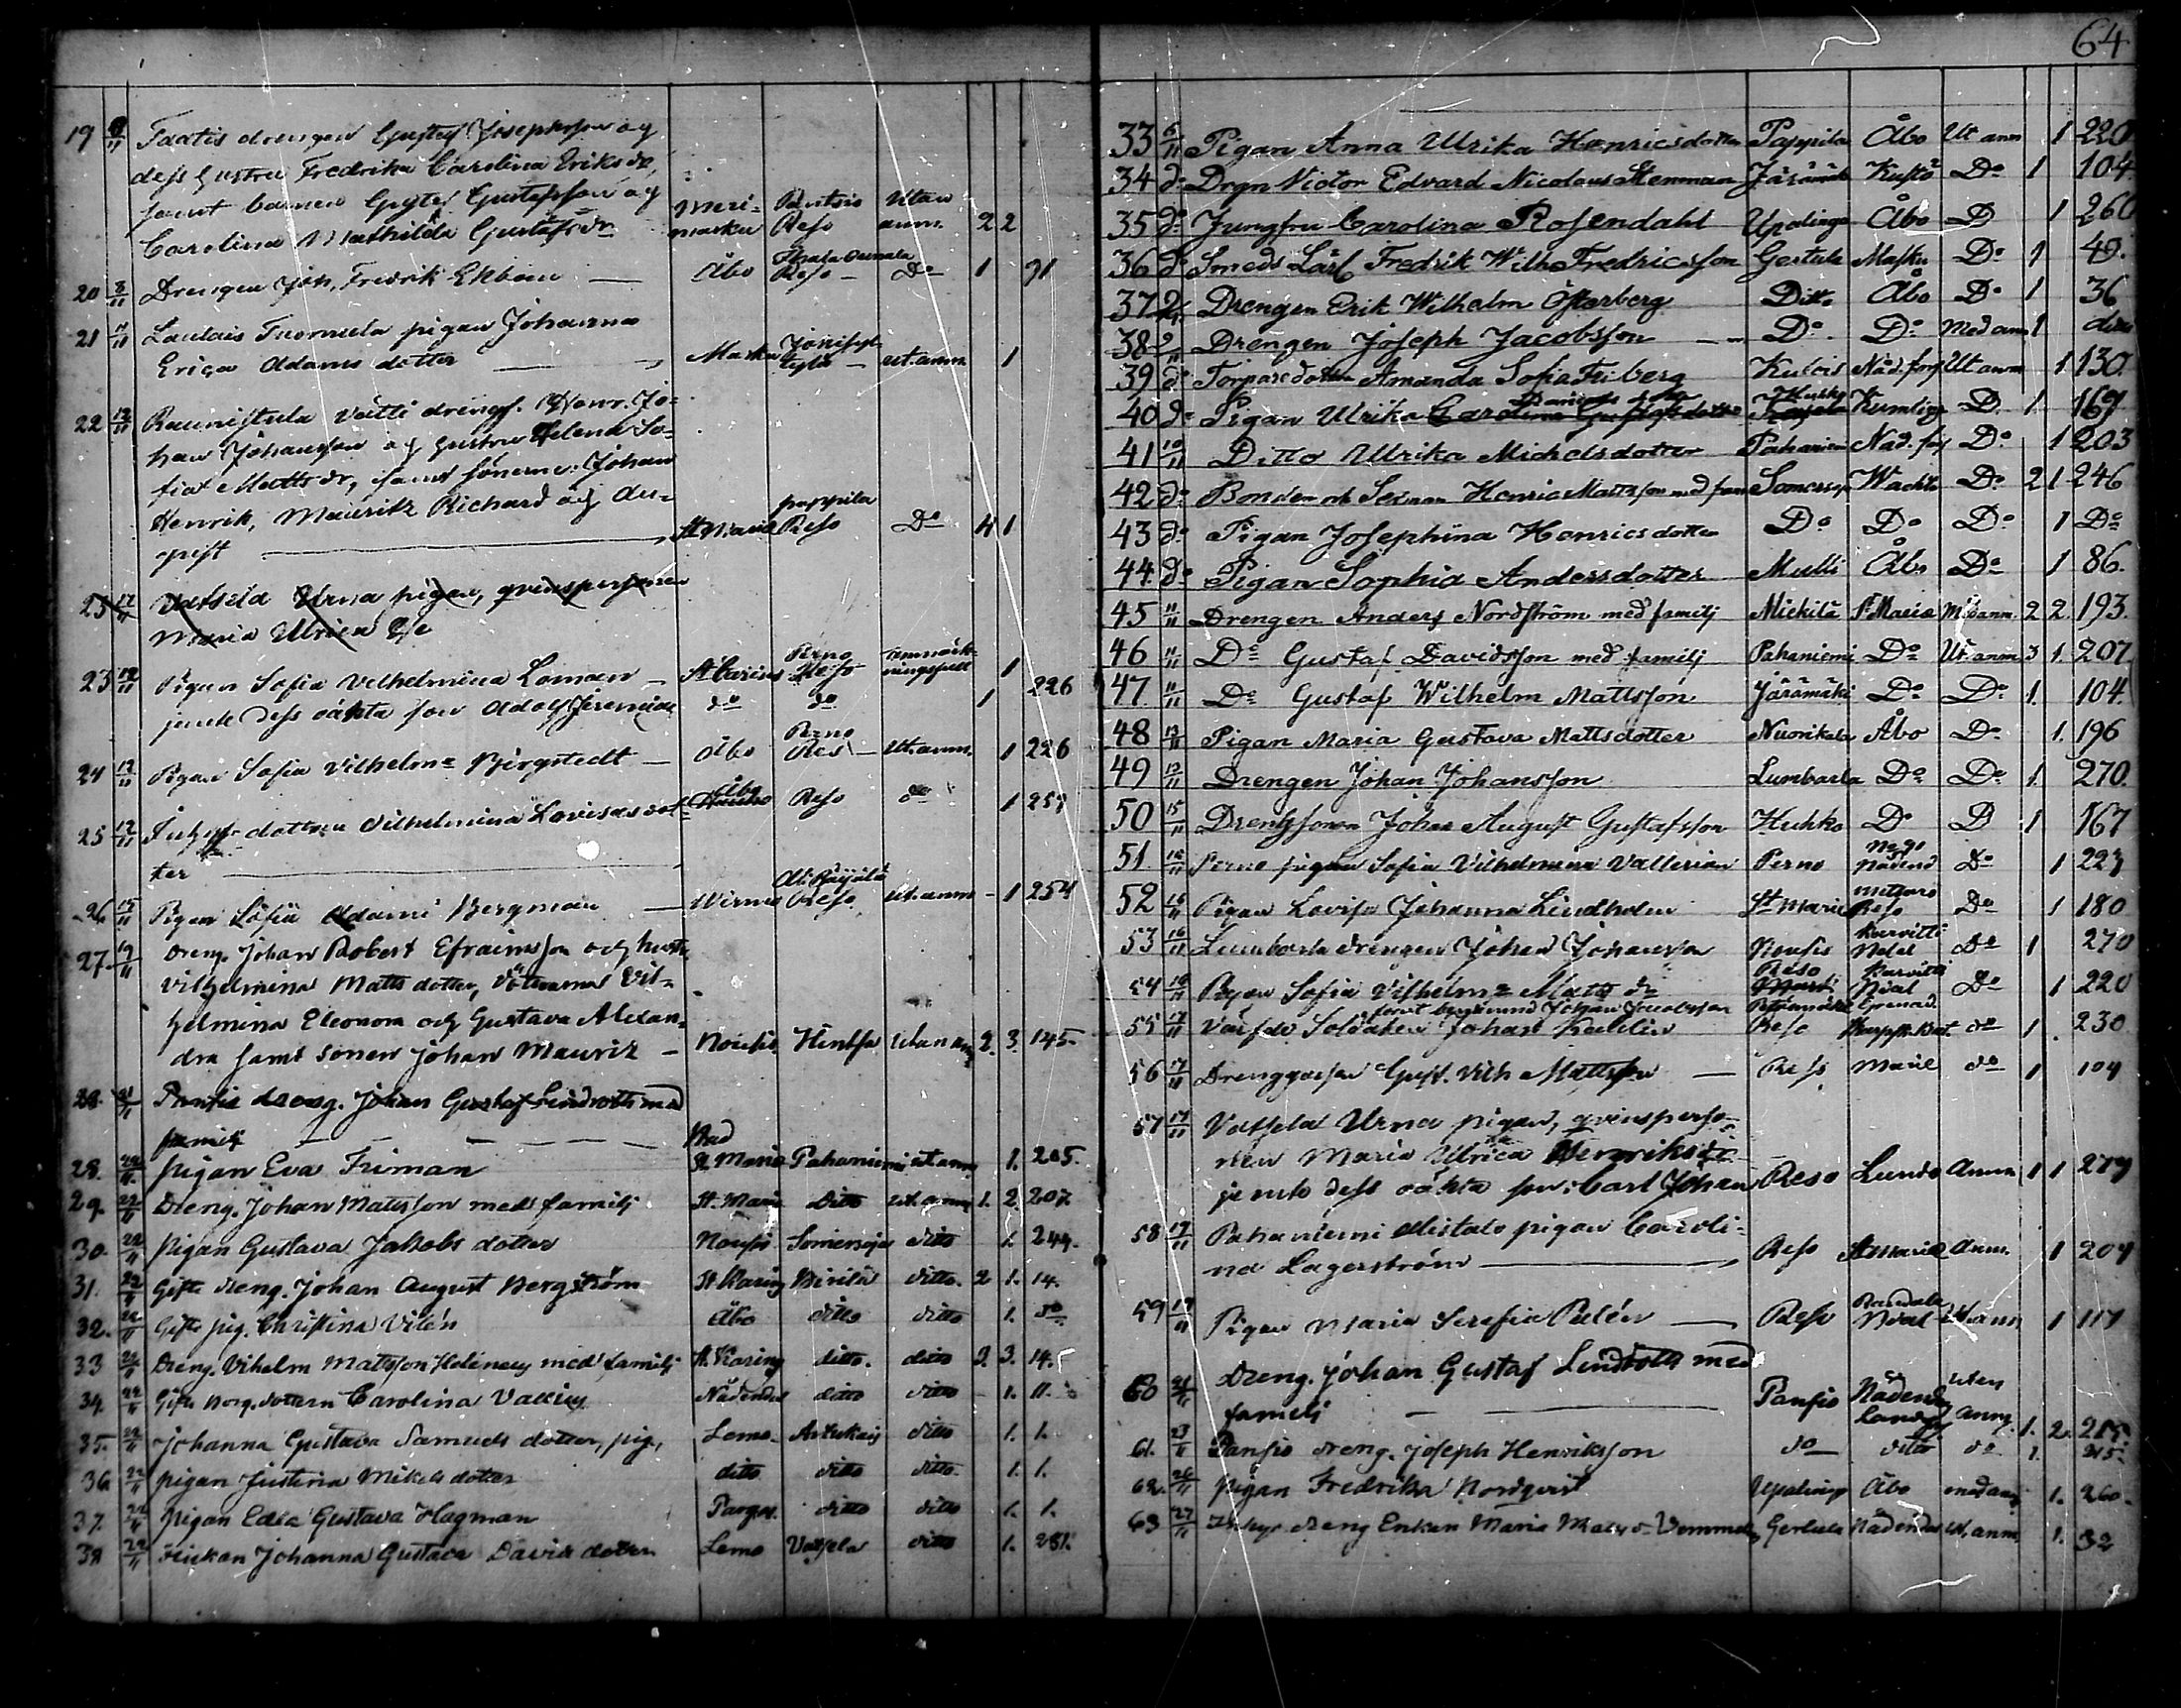 64
19 Faatis drengen Gustaf Josephsson och
dess hustru Fredrika Carolina Eriksdr,
samt barnen Gustaf Gustafsson och
Carolina Mathilda Gustafsdr Meri- masku Pantsio Reso Utan anm. 2 2
20 8/11 Drengen Joh. Fredrik Ekbom — Åbo Reso — Do 1 91
21 Laulais Tuomela pigan Johanna
Erica Adams dotter — Masku ut. anm 1
22 12/11 Raunistula Vätti drengs. Henr. Jo-
han Johansson och hustru Helena So-
fia Matts dr, samt sönerne: Johan
Henrik, Mauritz Richard och Au-
gust — St Marie pappila Reso Do 4 1
23 17/11 Vatsela Urna pigan, qvinspersonen
Maria Ulrica
23 12/11 Pigan Sofia Vilhelmina Loman — St Carins Perno Reso 1
jemte dess oäkta son Adolf Jeremias do do 1 226
24 12/11 Pigan Sofia Vilhelma Bergstedt — Åbo Perno Reso — Ut. anm. 1 226
25 12/11 dottren Vilhelmina Lovisas dot-
ter — Åbo Reso do 1 251
26 15/11 Pigan Sofia Adami Bergman — Wirmo Reso ut. anm - 1 254
27 19/11 Dreng. Johan Robert Efraimsson och hustr.
Vilhelmina Matts dotter, Döttrarna Vil-
helmina Eleonora och Gustava Alexan-
dra samt sonen Johan Mauritz — Nousis Hintsa Utan anm 2. 3. 145.
28. 21/11 Pansio dreng. Johan Gustaf Lindroth med
familj — Nad
28. 22/11 pigan Eva Friman St. Marie Pahaniemi ut anm 1. 205.
29. 22/11 Dreng. Johan Mattsson med familj St. Marie Ditto ut. anm 1. 2. 207.
30. 22/11 Pigan Gustava Jakobs dotter Nousis Somersoja ditto 1. 244.
31. 22/11 Gifte dreng. Johan August Bergström St Karins ditto. 2 1. 14.
32. 22/11 Gifte pig. Christina Vilén Åbo ditto ditto 1. do
33 22/11 Dreng. Vilhelm Mattsson Helenius med familj St. Karins ditto. ditto 3. 3. 14.
34. 22/11 Gifte dottern Carolina Vallius Nådendal ditto ditto - 1. 11.
35. 22/11 Johanna Gustava Samuels dotter, pig. Lemo. Artukais ditto 1. 1.
36. 22/11 pigan Justina Mikels dotter ditto ditto ditto. 1. 1.
37. 22/11 pigan Edla Gustava Hagman Pargas. ditto ditto 1. 1.
38 22/11 flickan Johanna Gustava Davids dotter Lemo Vatsela ditto 1. 281.
33 6/11 Pigan Anna Ulrika Henricsdotter Pappila Åbo Ut anm 1 220
34 do Drgn Victor Edvard Nicolaus Stenman Järämäki Kustö Do 1 104.
35 do Jungfru Carolina Rosendahl Upalinga Åbo D 1 260
36 do Smeds Lärl Fredrik Wilh Fredricsson Gertula Masku Do 1 49.
37 Drengen Erik Wilhelm Österberg Ditto Åbo Do 1 36
38 Drengen Joseph Jacobsson — Do. Do Med anm 1
39 do Torparedotter Amanda Sofia Friberg Kulois Nåd. förs Ut anm 1 130.
40 do Pigan Ulrika Carolina Gustafsdotter Huhko Kumlinge D. 1. 169
41 10/11 Ditto Ulrika Michelsdotter Pahaniemi Nåd. förs Do 1 203
42 do Bonden och Sexman Henric Mattsson med fam Somersoja Wachto Do 2 1 246
43 do Pigan Josephina Henricsdotter Do Do Do 1 Do
44. do Pigan Sophia Andersdotter Mulli Åbo Do 1 86.
45 11/11 Drengen Anders Nordström med familj Mickilä St Marie Med anm. 2 2. 193.
46 11/11 Do Gustaf Davidsson med familj Pahaniemi Do Ut. anm 3 1. 207.
47 11/11 Do Gustaf Wilhelm Mattsson Järämäki Do Do 1. 104.
48 13/11 Pigan Maria Gustava Mattsdotter Nuorikala Åbo Do 1. 196
49 13/11 Drengen Johan Johansson Lumbarla Do Do 1. 270.
50 15/11 Drengsonen Johan August Gustafsson Huhko Do D 1 167
51 16/11 Perno pigan Sofia Vilhelmina Vallerian Perno Nådend Do 1 223
52 16/11 Pigan Lovisa Johanna Lindholm St Marie Reso Do 1 180
53 16/11 Lumbarla drengen Johan Johansson Nousis Karvitti Nådal Do 1 270
54 16/11 Pigan Sofia Vilhelma Matts dr Reso Karvitti Nåal Do 1 220
55 17/11 förut benämnd Johan Jacobsson
Värfde Soldaten Johan Kallin Reso do 1. 230
56 17/11 Drenggossen Gust. Vilh Mattsson — Reso Marie do 1 104
57 17/11 Vatsela Urna pigan, qvinsperso-
nen Maria Ulrica Henriksdr
jemte dess oäkta son: Carl Johan Reso Lundo Anm 1 1 279
58 17/11 Pahaniemi Alistalo pigan Caroli-
na Lagerström — Reso St Marie Anm. 1 204
59 19/11 Pigan Maria Serafia Palén — Reso Nåal Ut anm 1 117
60 21/11 Dreng. Johan Gustaf Lindroth med
familj — Pansio Nådendal lands utan anm. 1. 2. 215.
61. 23/11 Pansio dreng. Joseph Henriksson do ditto do 1. 215.
62. 26/11 pigan Fredrika Nordqvist Upalinga Åbo med anm 1. 260.
63 27/11 dreng Enkan Maria Mats dr Gertula Nådendal ut. anm 1. 32